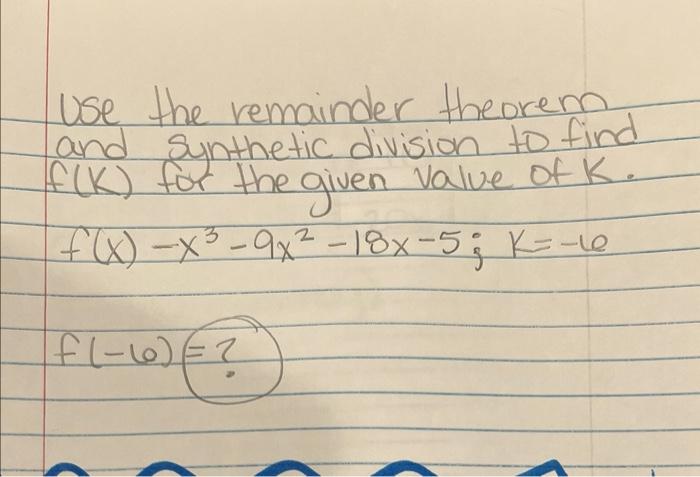 Use the remainder theorem
and synthetic division to find
f(K) for the given value of K.
f(x) -x³ -9x² -18x -5; K=-6
f(-6) = ?